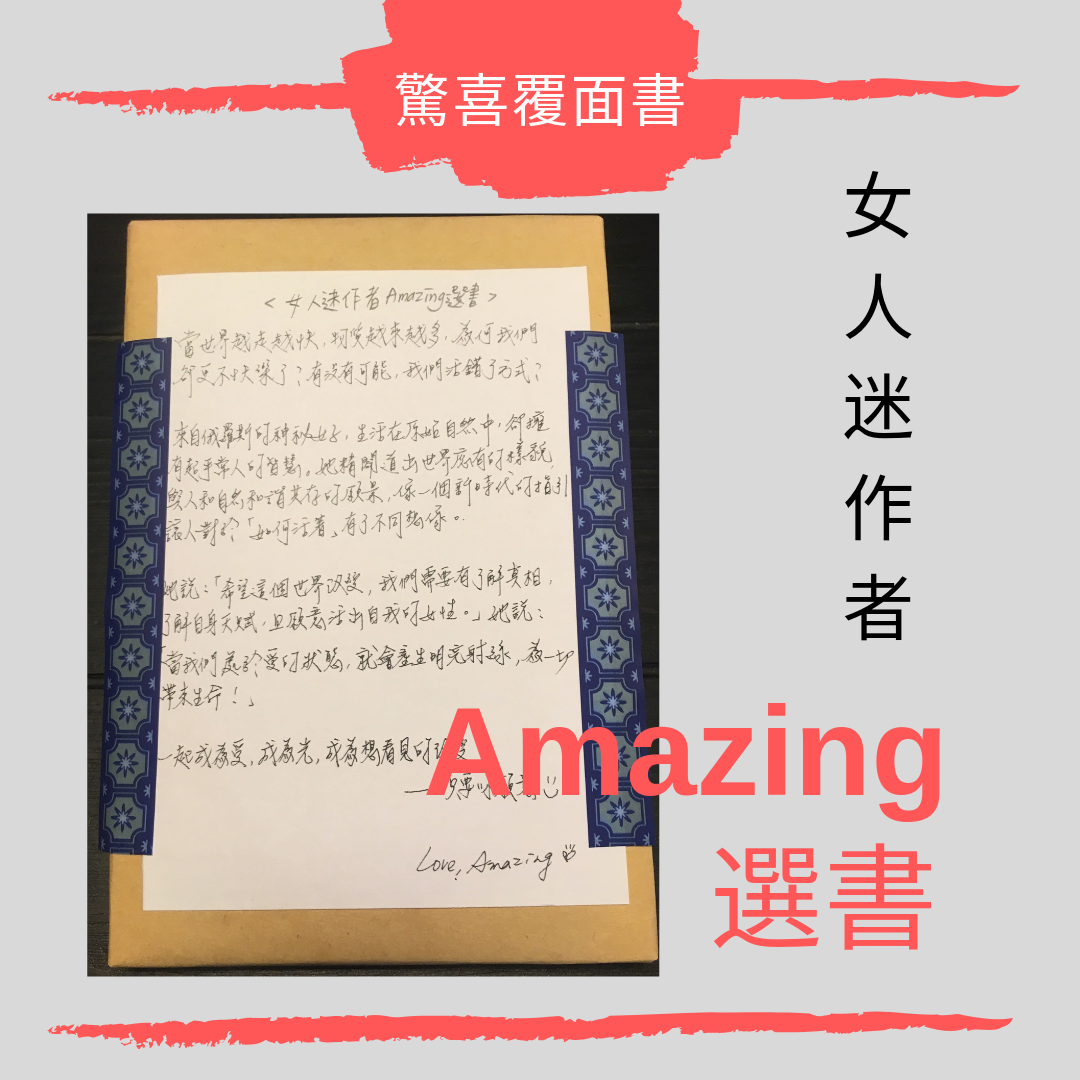 驚喜覆面書
女人迷作者
Amazing
選書
<女人迷作者Amazing選書>
當世界越走越快,物質越來越多,為何我們
卻更不快樂了?有沒有可能,我們活錯了方式?
來自俄羅斯的神秘女子,生活在原始自然中,卻擁
有超乎常人的智慧。她精闢道出世界應有的樣貌,
與人和自然和諧共存的願景,像一個新時代的指引
讓人對於「如何活著」有了不同想像。
她說:「希望這個世界改變,我們需要有了解真相,
了解自身天賦,且願意活出自我的女性。」她說:
「當我們處於愛的狀態,就會產生明亮射線,為一切
帶來生命!」
一起成為愛,成為光,成為想看見的改變
Love, Amazing